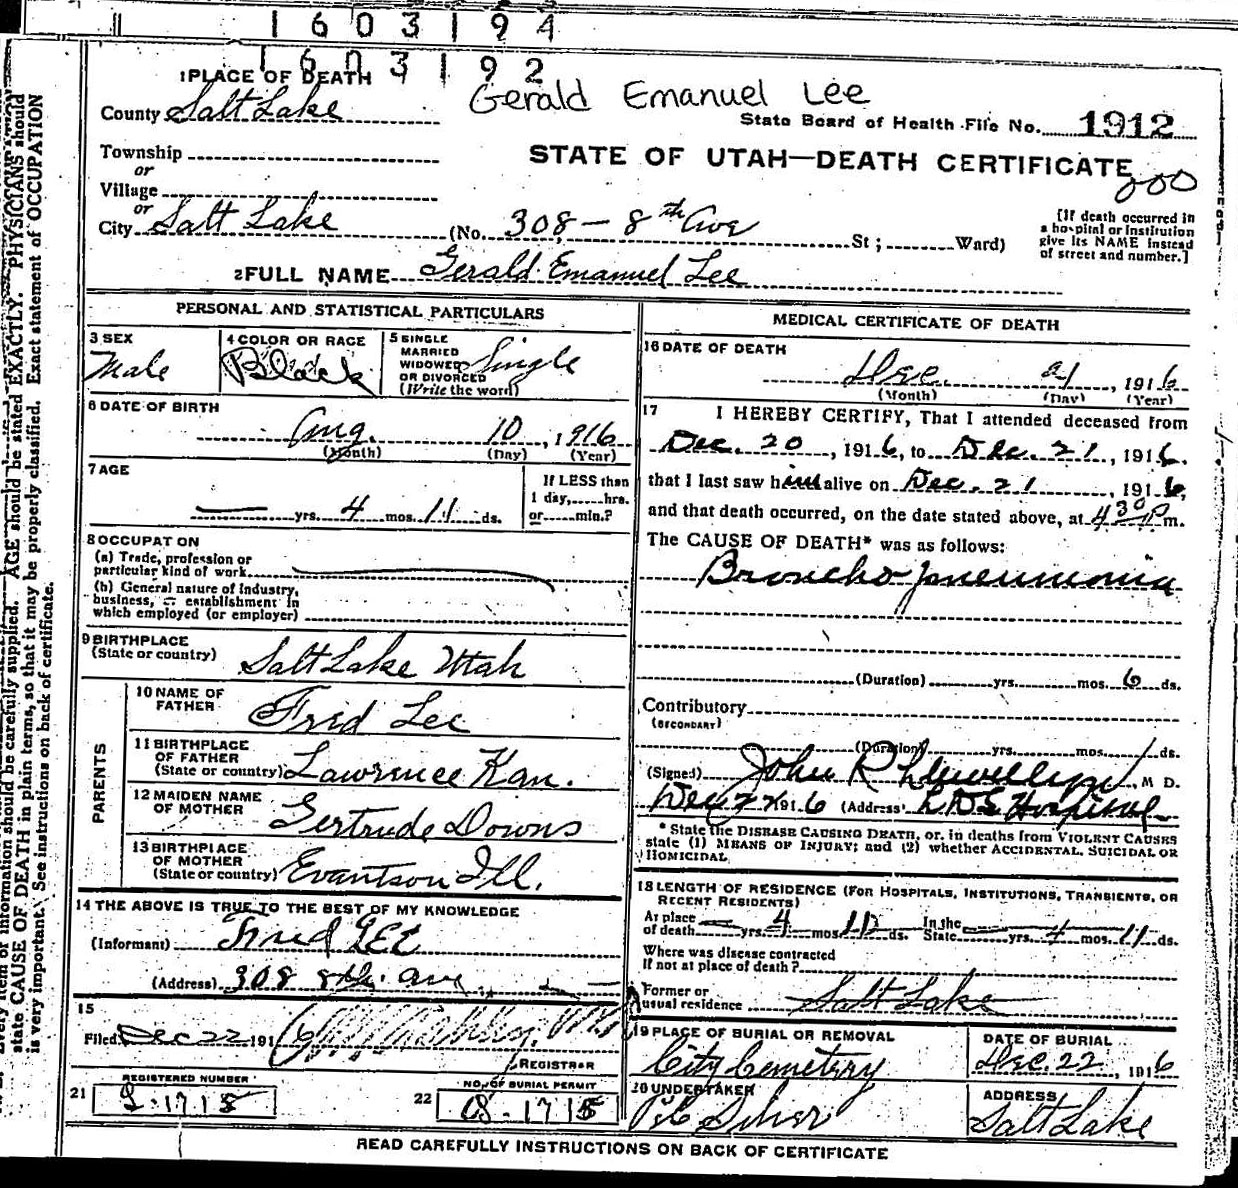 1603194
1603192
1 PLACE OF DEATH
Gerald Emanuel Lee
County Salt Lake
State Board of Health File No. 1912
Township
or
STATE OF UTAH—DEATH CERTIFICATE
Village
or
City Salt Lake (No. 308 - 8th Ave St; Ward)
[If death occurred in
a hospital or institution
give its NAME instead
of street and number.]
2 FULL NAME Gerald Emanuel Lee
PERSONAL AND STATISTICAL PARTICULARS
3 SEX
Male
4 COLOR OR RACE
Black
5 SINGLE
MARRIED
WIDOWED
OR DIVORCED
(Write the word)
Single
6 DATE OF BIRTH
Aug. 10, 1916
(Month) (Day) (Year)
7 AGE
yrs. 4 mos. 11 ds.
If LESS than
1 day, hrs.
or min.?
8 OCCUPATION
(a) Trade, profession or
particular kind of work
(b) General nature of industry,
business, or establishment in
which employed (or employer)
9 BIRTHPLACE
(State or country) Salt Lake Utah
PARENTS
10 NAME OF
FATHER Fred Lee
11 BIRTHPLACE
OF FATHER
(State or country) Lawrence Kan.
12 MAIDEN NAME
OF MOTHER Gertrude Downs
13 BIRTHPLACE
OF MOTHER
(State or country) Evantson Ill.
14 THE ABOVE IS TRUE TO THE BEST OF MY KNOWLEDGE
(Informant) Fred LEE
(Address) 308 8th. ave
15
Filed Dec 22 1916
REGISTRAR
REGISTERED NUMBER
21
NO. OF BURIAL PERMIT
22
MEDICAL CERTIFICATE OF DEATH
16 DATE OF DEATH
Dec. 21, 1916
(Month) (Day) (Year)
17 I HEREBY CERTIFY, That I attended deceased from
Dec. 20, 1916, to Dec. 21, 1916.
that I last saw him alive on Dec. 21, 1916,
and that death occurred, on the date stated above, at 4 30 p m.
The CAUSE OF DEATH* was as follows:
Broncho pneumonia
(Duration) yrs. mos. 6 ds.
Contributory
(SECONDARY)
(Duration) yrs. mos. 1 ds.
(Signed) John R Llewellyn, M D.
Dec 22 1916 (Address) L D S Hospital
* State the DISEASE CAUSING DEATH, or, in deaths from VIOLENT CAUSES
state (1) MEANS OF INJURY; and (2) whether ACCIDENTAL, SUICIDAL OR
HOMICIDAL
18 LENGTH OF RESIDENCE (FOR HOSPITALS, INSTITUTIONS, TRANSIENTS, OR
RECENT RESIDENTS)
At place of death yrs. 4 mos. 11 ds. In the State yrs. 4 mos. 11 ds.
Where was disease contracted
If not at place of death?
Former or
usual residence Salt Lake
19 PLACE OF BURIAL OR REMOVAL
City Cemetery
DATE OF BURIAL
Dec. 22, 1916
20 UNDERTAKER
ADDRESS
Salt Lake
READ CAREFULLY INSTRUCTIONS ON BACK OF CERTIFICATE
information should be carefully supplied. AGE should be stated EXACTLY. PHYSICIANS should
state CAUSE OF DEATH in plain terms, so that it may be properly classified. Exact statement of OCCUPATION
is very important. See instructions on back of certificate.